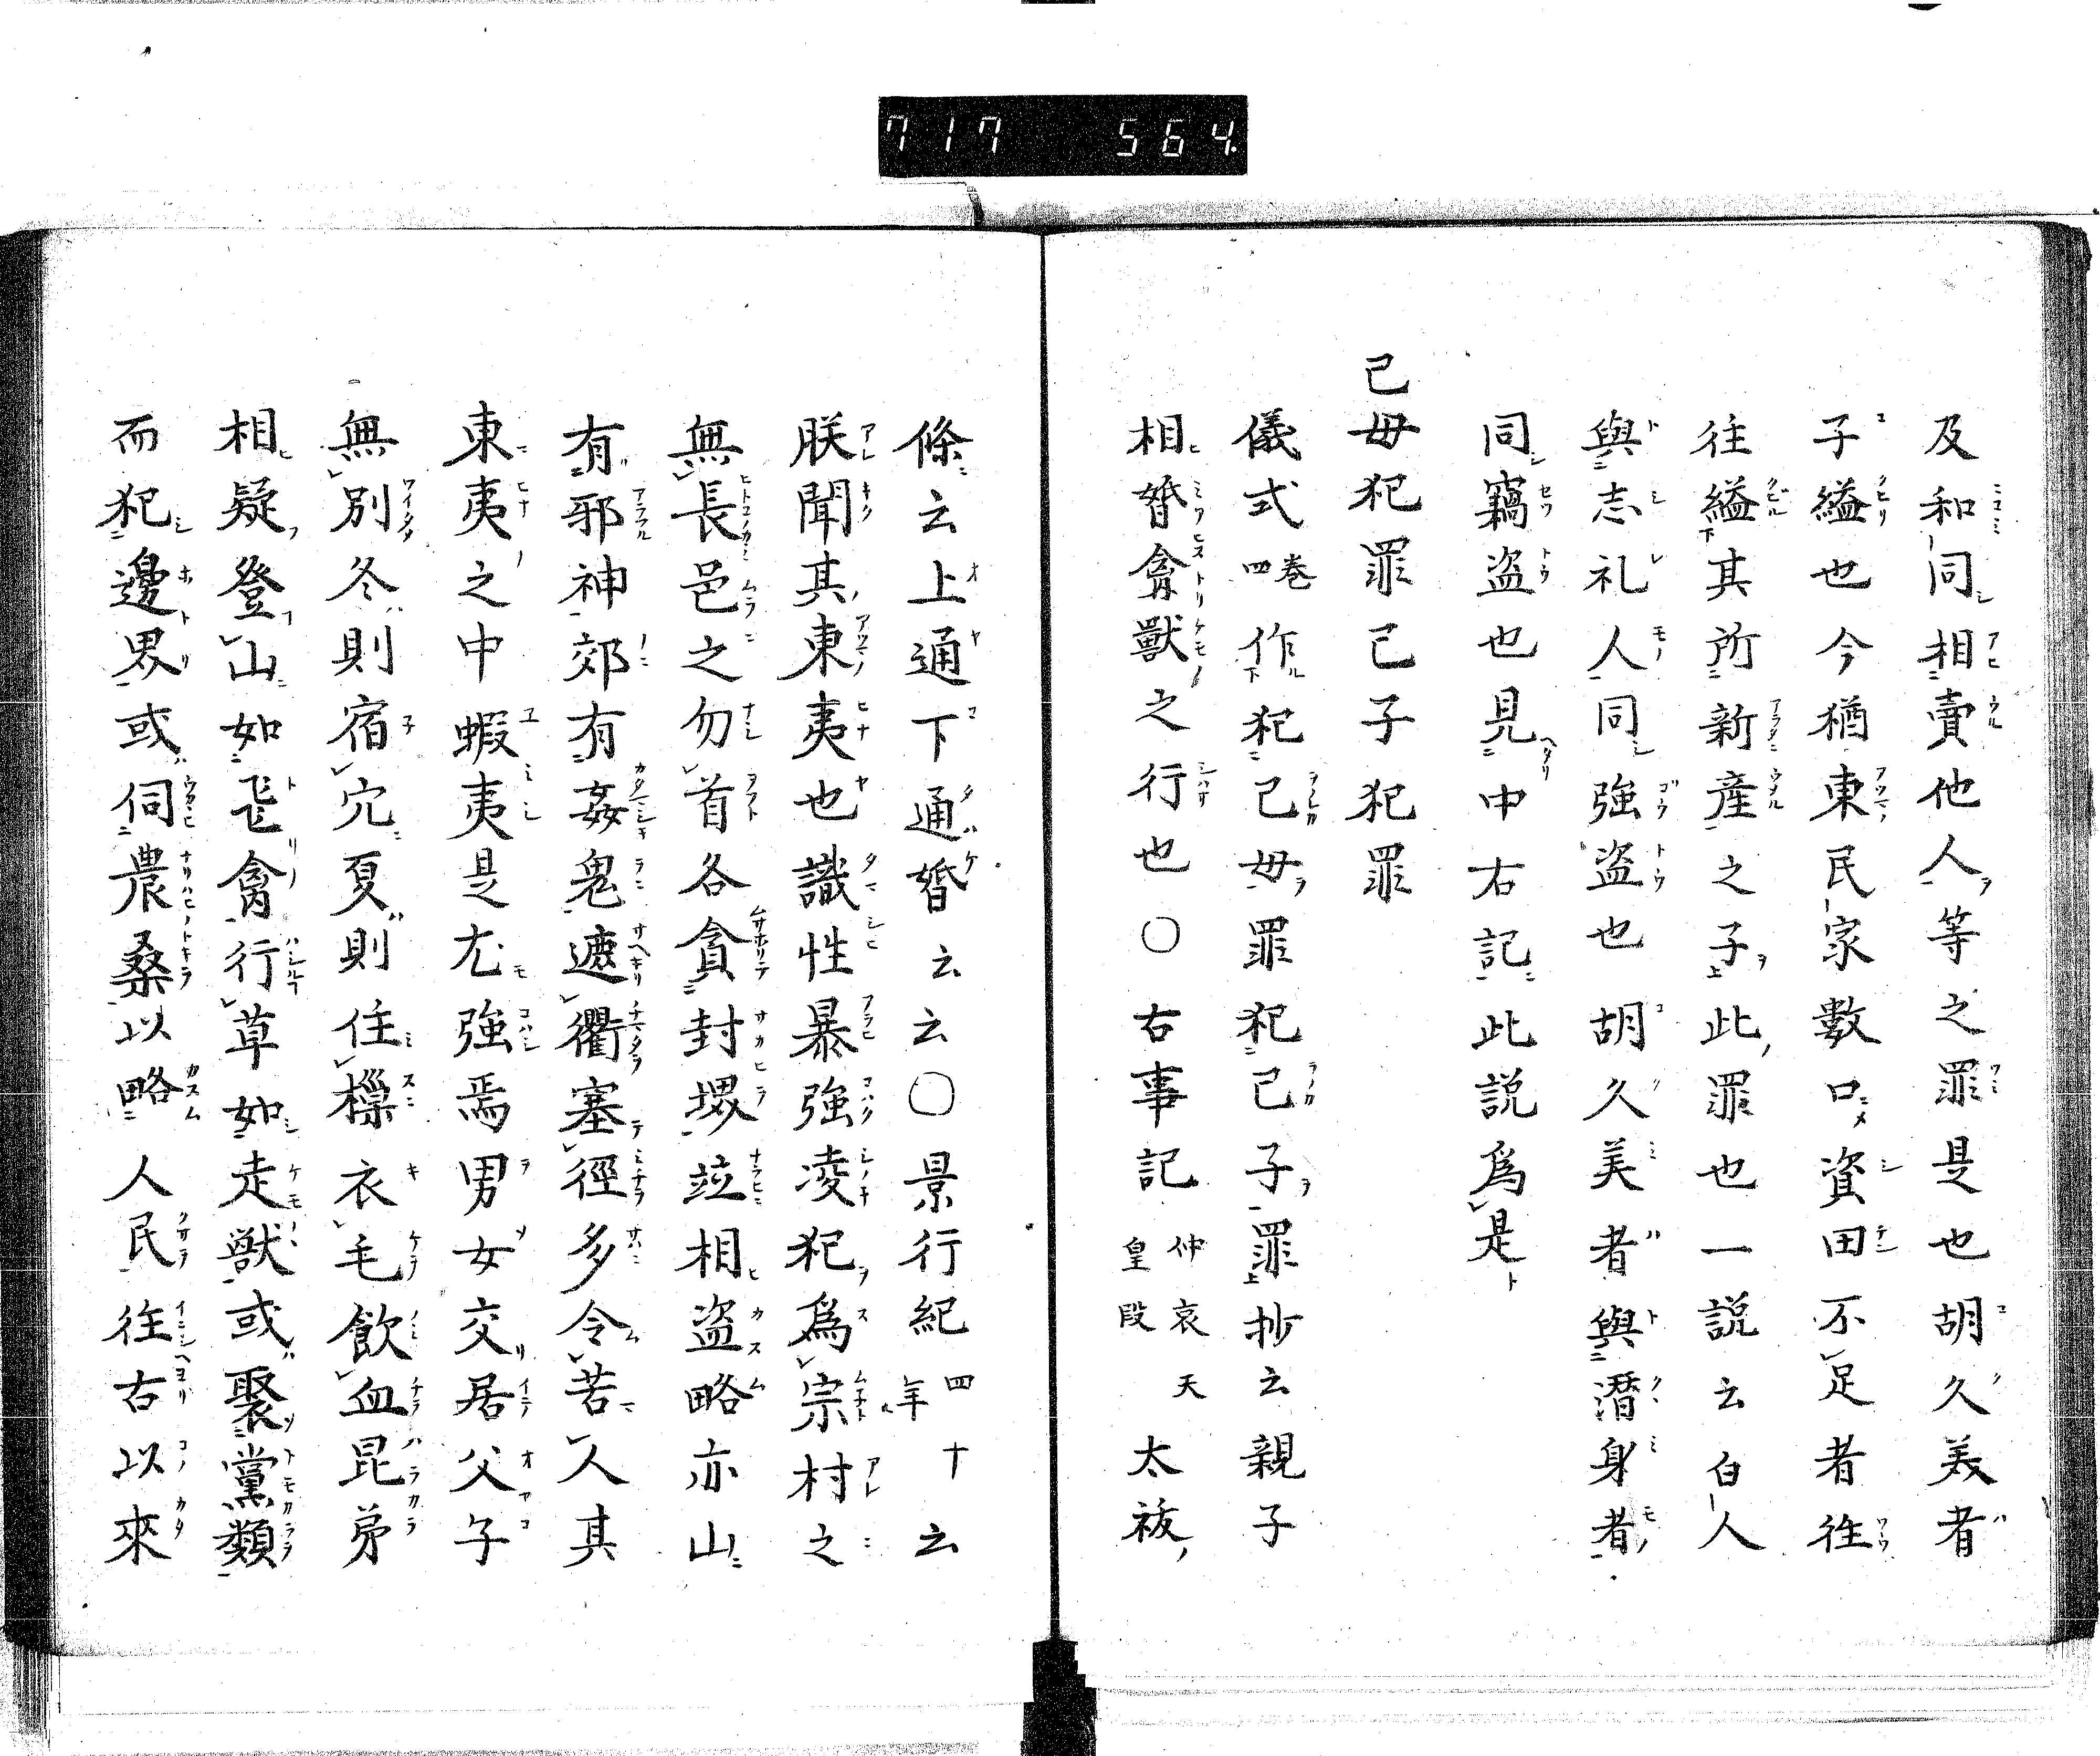 717 564
及和同相賣他人等之罪是也胡久美者
子縊也今猶東民家數口資田不足者往
往縊其所新産之子此罪也一説云白人
與志礼人同強盗也胡久美者與潛身者
同竊盗也見中右記此説爲是
己母犯罪己子犯罪
儀式四巻作犯己母罪犯己子罪抄云親子
相婚禽獸之行也〇古事記仲哀天皇段太祓
條云上通下通婚云云〇景行紀四十年云
朕聞其東夷也識性暴強凌犯爲宗村之
無長邑之勿首各貪封堺竝相盗略亦山
有邪神郊有姦鬼遮衢塞徑多令苦人其
東夷之中蝦夷是尤強焉男女交居父子
無別冬則宿穴夏則住樔衣毛飲血昆弟
相疑登山如飛禽行草如走獣或聚黨類
而犯邊界或伺農桑以略人民往古以來